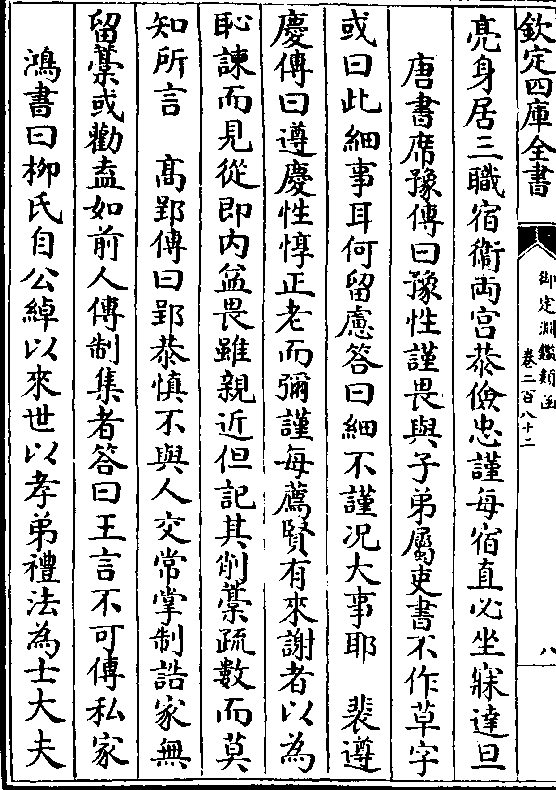 欽定四庫全書
御定淵鑑類函
卷二百八十二
八
亮身居三職宿衞兩宫恭儉忠謹每宿直必坐寐達旦
唐書席豫傳曰豫性謹畏與子弟屬吏書不作草字
或曰此細事耳何留慮答曰細不謹况大事耶 裴遵
慶傳曰遵慶性惇正老而彌謹每薦賢有來謝者以為
恥諫而見從即内益畏雖親近但記其削藁疏數而莫
知所言 髙郢傳曰郢恭慎不與人交常掌制誥家無
留藁或勸盍如前人傳制集者答曰王言不可傳私家
鴻書曰柳氏自公綽以來世以孝弟禮法為士大夫